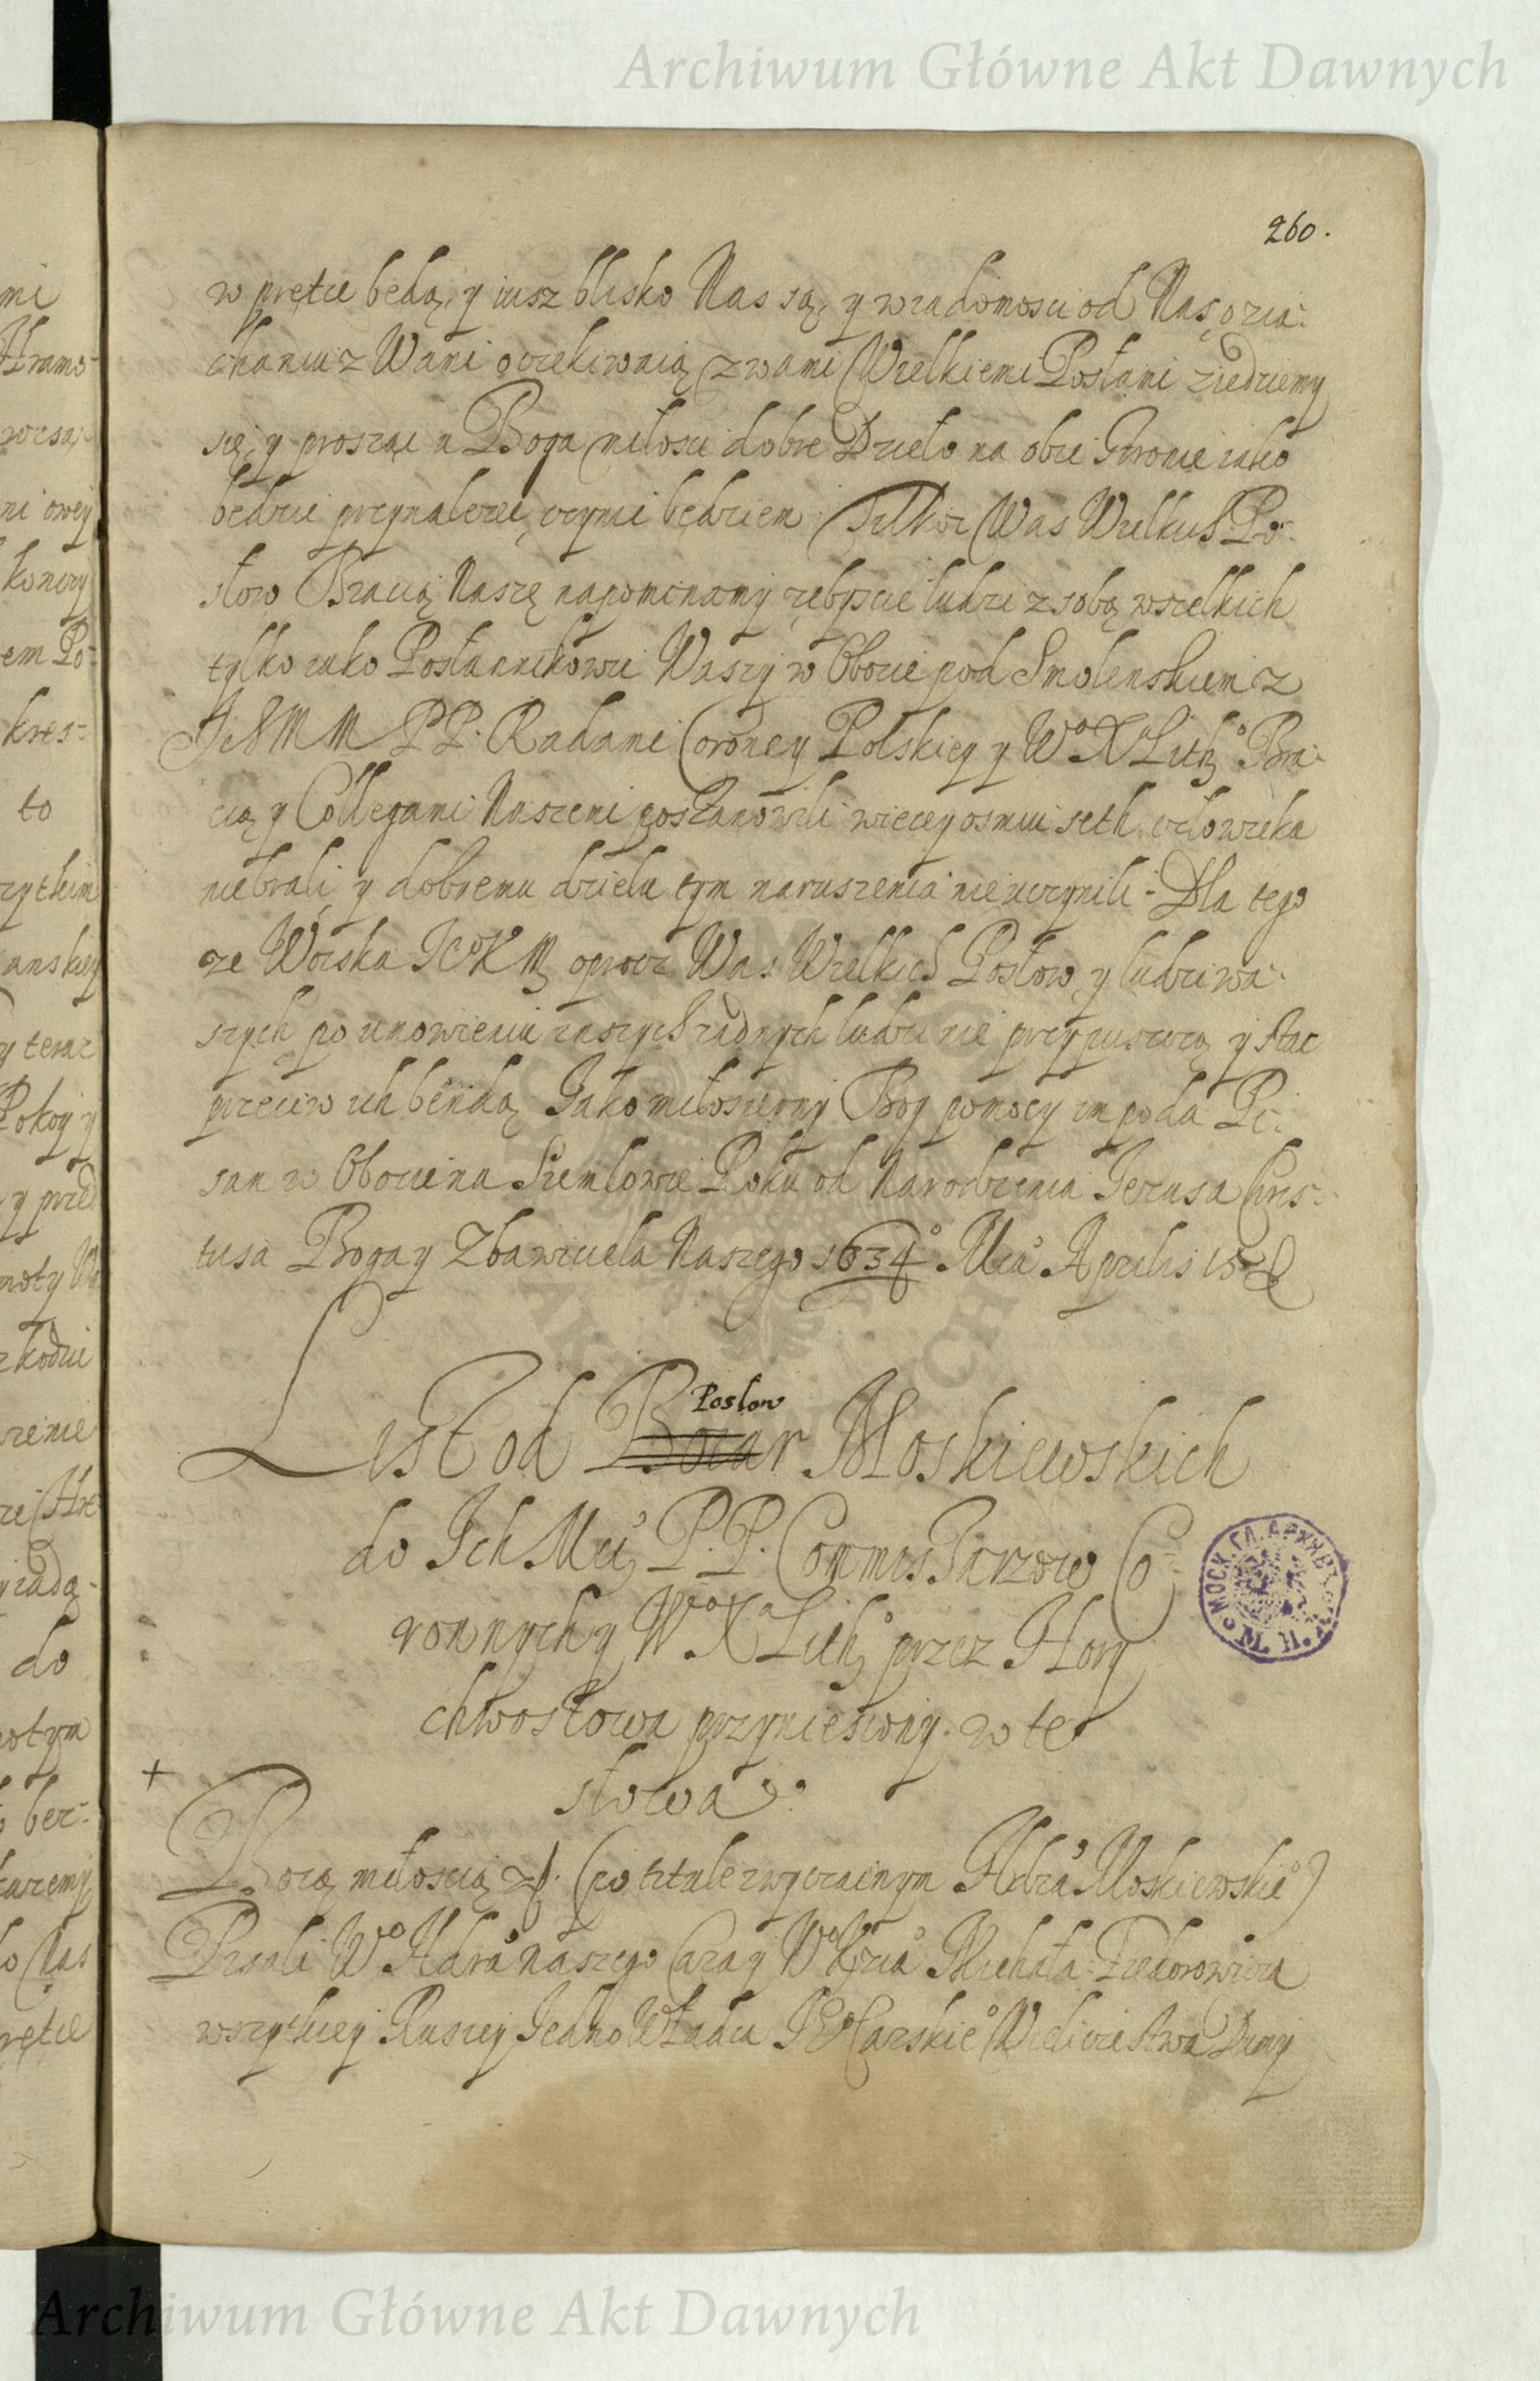 Archiwum Główne Akt Dawnych
260.
w prętce będą, y iusz blisko Nas są, y wiadomosci od Nas o zia-
chaniu z Wami oczekiwaią, z wami Wielkiemi Posłami ziedziemy
się, y prosząc u Boga miłosci dobre Dzieło na obie stronie iako
będzie przynalezec, czynic będziem. Tylko Was Wielkich Po-
słow Bracią Naszę napominamy zebyscie ludzi z sobą wszelkich
tylko iako Posłannikowie Waszy w Obozie pod Smolenskiem z
PP. Radami Coroney Polskiey y Wº X Litº Bra-
cią y Collegami Naszemi postanowili wiecey osmiu seth człowieka
niebrali, y dobremu dziełu tym naruszenia nie uczynili. Dla tego
ze Woiska KM oprocz Was Wielkich Posłow y ludzi wa-
szych po umowieniu zadnych ludzi nie przypuszczą y stac
przeciw ich bendą, Jako miłosierny Bog pomocy im poda. Pi-
san w Obozie na Siemlowie Roku od Narodzenia Jezusa Chris-
tusa Boga y Zbawiciela Naszego 1634º Mcaº Aprilis 15 d
List od Boiar Posłow Moskiewskich
do Ich Mci P.P. Commissarzow Co-
ronnych y Wº X Lith przez Hory
chwostowa przyniesiony w te
słowa
+
Bożą miłoscią (po tytule zwyczainym Hdraº Moskiewskieº)
Pisali Wº Hdraº naszego Cara y Wº Xzia Michała Fiedorowicza
wszytkiey Rusiey Jedno Władcu Carskieº Wieliczestwa Dumy
МОСК. ГЛ. АРХИВЪ М. И. Д.
Archiwum Główne Akt Dawnych